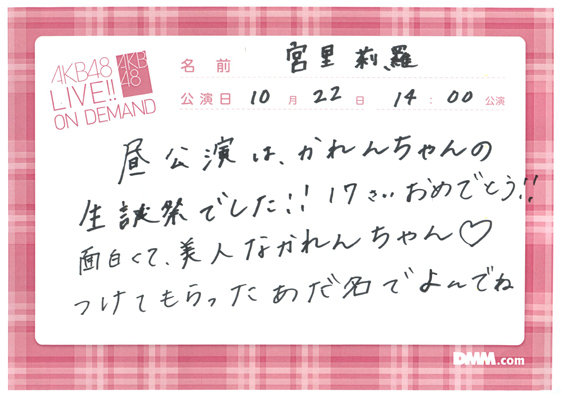 AKB48
LIVE!!
ON DEMAND
AKB
48
名前 宮里莉羅
公演日 10月22日 14:00公演
昼公演は、かれんちゃんの
生誕祭でした!! 17さいおめでとう!!
面白くて、美人なかれんちゃん♡
つけてもらったあだ名でよんでね
DMM.com